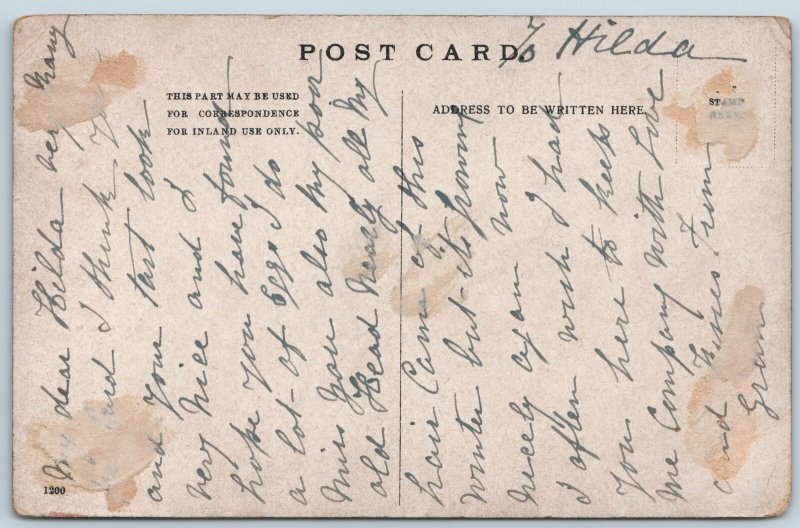 POST CARD.
To Hilda
THIS PART MAY BE USED
FOR CORRESPONDENCE
FOR INLAND USE ONLY.
ADDRESS TO BE WRITTEN HERE.
STAMP
HERE
My dear Hilda her Many
Card I think you
and your tart look
very Nice and I
hope you have found
a lot of Eggs I do
Miss you also My poor
old Head Nearly all My
hair Came of this
winter but its growing
Nicely again now
I often wish I had
You here to keep
Me Company With Love
and Kisses From
Gram
1200